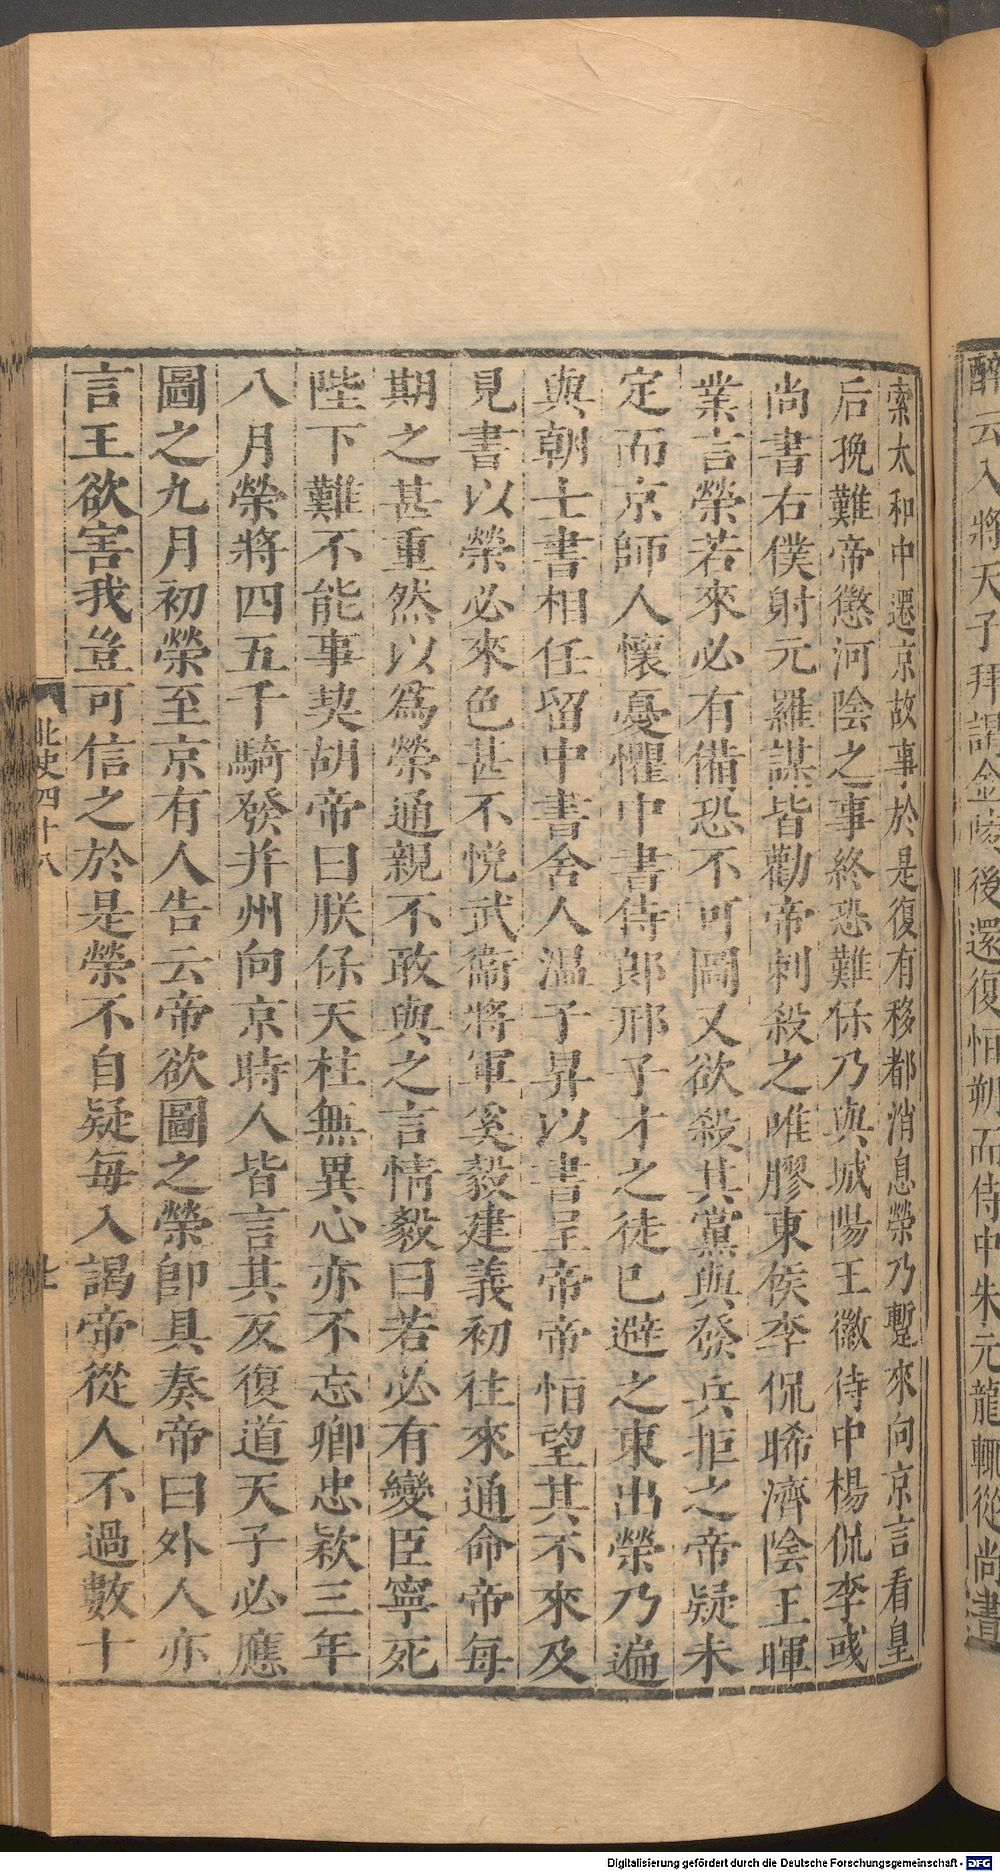 醉云入將天子拜謁金陵後還復恒朔而侍中朱元龍輒從尚書
索太和中遷京故事於是復有移都消息榮乃蹔來向京言看皇
后挽難帝懲河陰之事終恐難保乃與城陽王徽侍中楊侃李彧
尚書右僕射元羅謀皆勸帝刺殺之唯膠東侯李侃晞濟陰王暉
業言榮若來必有備恐不可圖又欲殺其黨與發兵拒之帝疑未
定而京師人懷憂懼中書侍郎邢子才之徒已避之東出榮乃遍
與朝士書相任留中書舍人溫子昇以書呈帝帝怕望其不來及
見書以榮必來色甚不悅武衞將軍奚毅建義初往來通命帝每
期之甚重然以爲榮通親不敢與之言情毅曰若必有變臣寧死
陛下難不能事契胡帝曰朕保天柱無異心亦不忘卿忠欵三年
八月榮將四五千騎發并州向京時人皆言其反復道天子必應
圖之九月初榮至京有人告云帝欲圖之榮卽具奏帝曰外人亦
言王欲害我豈可信之於是榮不自疑每入謁帝從人不過數十
北史四十八
Digitalisierung gefördert durch die Deutsche Forschungsgemeinschaft - DFG